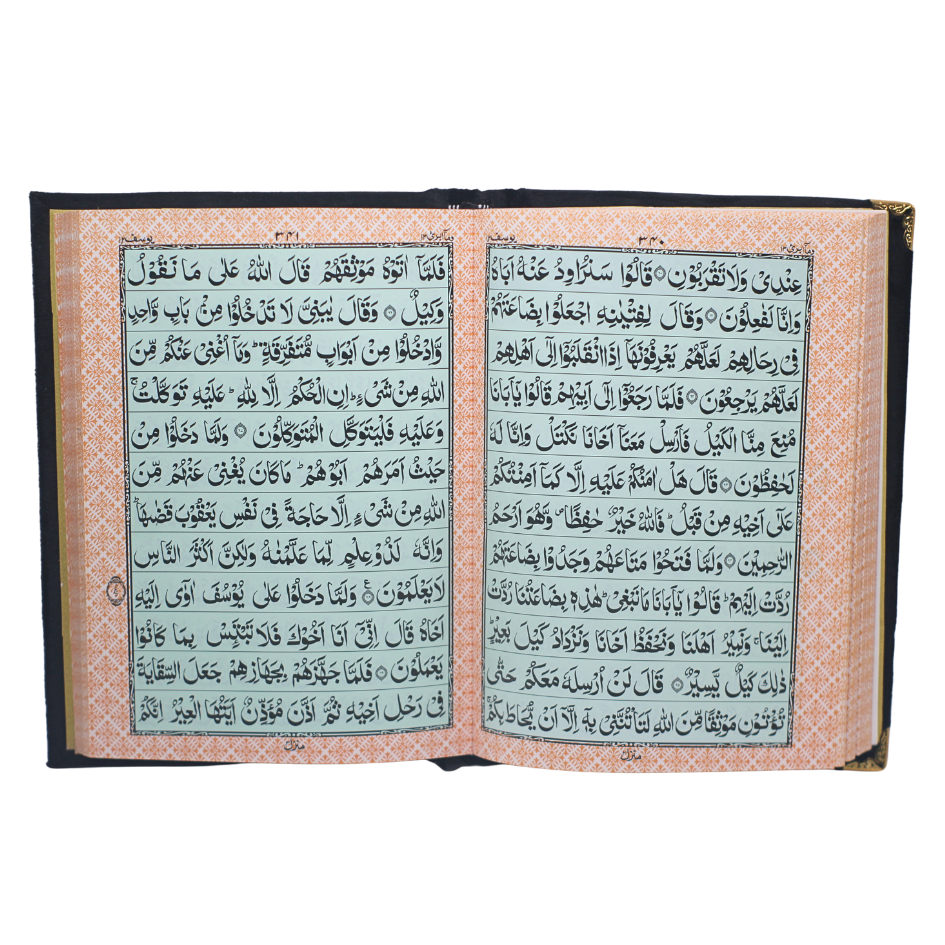 يوسف ١٢
٣٤٠
عِنْدِىْ وَلَا تَقْرَبُوْنِ ۝ قَالُوْا سَنُرَاوِدُ عَنْهُ اَبَاهُ
وَاِنَّا لَفٰعِلُوْنَ ۝ وَقَالَ لِفِتْيٰنِهِ اجْعَلُوْا بِضَاعَتَهُمْ
فِىْ رِحَالِهِمْ لَعَلَّهُمْ يَعْرِفُوْنَهَاۤ اِذَا انْقَلَبُوْۤا اِلٰٓى اَهْلِهِمْ
لَعَلَّهُمْ يَرْجِعُوْنَ ۝ فَلَمَّا رَجَعُوْۤا اِلٰٓى اَبِيْهِمْ قَالُوْا يٰۤاَبَانَا
مُنِعَ مِنَّا الْكَيْلُ فَاَرْسِلْ مَعَنَاۤ اَخَانَا نَكْتَلْ وَاِنَّا لَهٗ
لَحٰفِظُوْنَ ۝ قَالَ هَلْ اٰمَنُكُمْ عَلَيْهِ اِلَّا كَمَاۤ اَمِنْتُكُمْ
عَلٰٓى اَخِيْهِ مِنْ قَبْلُ ؕ فَاللّٰهُ خَيْرٌ حٰفِظًا ۪ وَّهُوَ اَرْحَمُ
الرّٰحِمِيْنَ ۝ وَلَمَّا فَتَحُوْا مَتَاعَهُمْ وَجَدُوْا بِضَاعَتَهُمْ
رُدَّتْ اِلَيْهِمْ ؕ قَالُوْا يٰۤاَبَانَا مَا نَبْغِىْ ؕ هٰذِهٖ بِضَاعَتُنَا رُدَّتْ
اِلَيْنَا ۚ وَنَمِيْرُ اَهْلَنَا وَنَحْفَظُ اَخَانَا وَنَزْدَادُ كَيْلَ بَعِيْرٍ ؕ
ذٰلِكَ كَيْلٌ يَّسِيْرٌ ۝ قَالَ لَنْ اُرْسِلَهٗ مَعَكُمْ حَتّٰى
تُؤْتُوْنِ مَوْثِقًا مِّنَ اللّٰهِ لَتَاْتُنَّنِىْ بِهٖۤ اِلَّاۤ اَنْ يُّحَاطَ بِكُمْ ۚ
منزل
يوسف ١٢
٣٤١
فَلَمَّاۤ اٰتَوْهُ مَوْثِقَهُمْ قَالَ اللّٰهُ عَلٰى مَا نَقُوْلُ
وَكِيْلٌ ۝ وَقَالَ يٰبَنِىَّ لَا تَدْخُلُوْا مِنْۢ بَابٍ وَّاحِدٍ
وَّادْخُلُوْا مِنْ اَبْوَابٍ مُّتَفَرِّقَةٍ ؕ وَمَاۤ اُغْنِىْ عَنْكُمْ مِّنَ
اللّٰهِ مِنْ شَىْءٍ ؕ اِنِ الْحُكْمُ اِلَّا لِلّٰهِ ؕ عَلَيْهِ تَوَكَّلْتُ ۚ
وَعَلَيْهِ فَلْيَتَوَكَّلِ الْمُتَوَكِّلُوْنَ ۝ وَلَمَّا دَخَلُوْا مِنْ
حَيْثُ اَمَرَهُمْ اَبُوْهُمْ ؕ مَا كَانَ يُغْنِىْ عَنْهُمْ مِّنَ
اللّٰهِ مِنْ شَىْءٍ اِلَّا حَاجَةً فِىْ نَفْسِ يَعْقُوْبَ قَضٰهَا ؕ
وَاِنَّهٗ لَذُوْ عِلْمٍ لِّمَا عَلَّمْنٰهُ وَلٰكِنَّ اَكْثَرَ النَّاسِ
لَا يَعْلَمُوْنَ ۝ وَلَمَّا دَخَلُوْا عَلٰى يُوْسُفَ اٰوٰٓى اِلَيْهِ
اَخَاهُ قَالَ اِنِّىْۤ اَنَا اَخُوْكَ فَلَا تَبْتَئِسْ بِمَا كَانُوْا
يَعْمَلُوْنَ ۝ فَلَمَّا جَهَّزَهُمْ بِجَهَازِهِمْ جَعَلَ السِّقَايَةَ
فِىْ رَحْلِ اَخِيْهِ ثُمَّ اَذَّنَ مُؤَذِّنٌ اَيَّتُهَا الْعِيْرُ اِنَّكُمْ
منزل